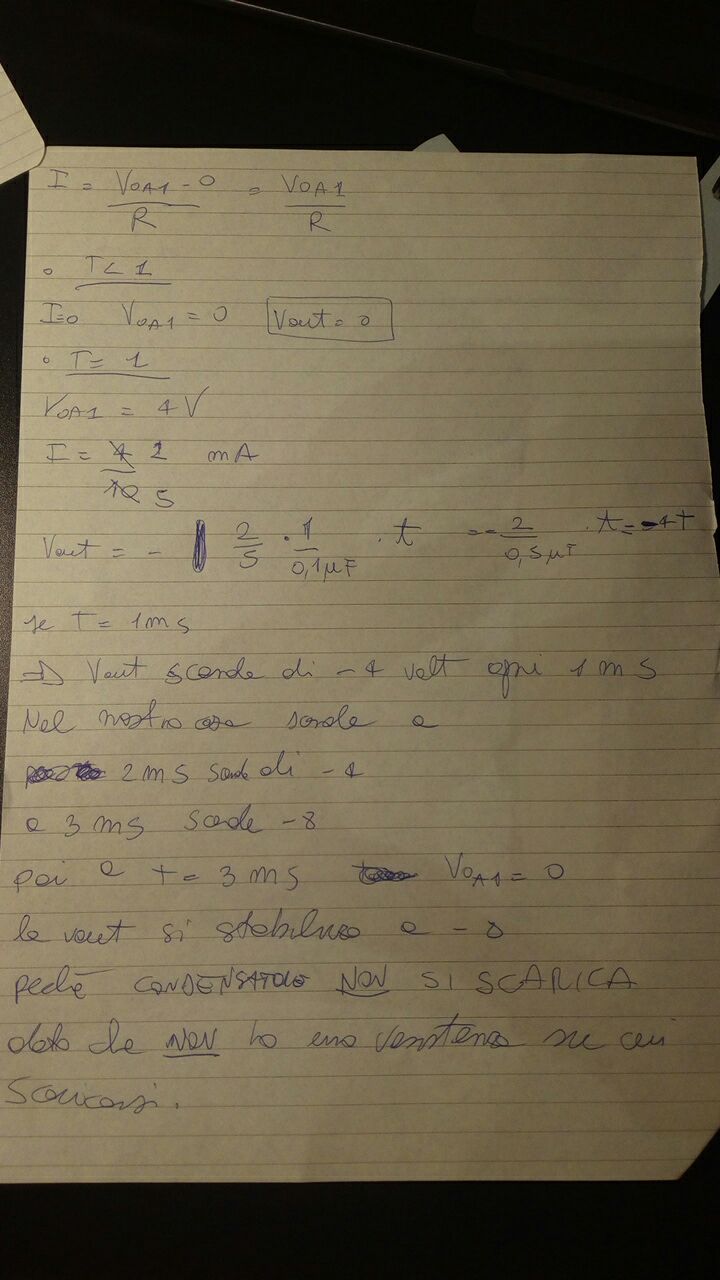 I = VOA1 - 0 / R = VOA1 / R
° T < 1
I=0 VOA1 = 0 Vout = 0
° T = 1
VOA1 = 4 V
I = 4 2 / 10 5 mA
Vout = - 2/5 · 1/0,1μF · t = - 2/0,5μF · t = -4t
se T = 1 ms
⇒ Vout scende di -4 volt ogni 1 ms
Nel nostro caso scende a
2 ms scende di -4
a 3 ms scende -8
poi a t = 3 ms VOA1 = 0
la vout si stabilizza a -8
perché CONDENSATORE NON SI SCARICA
dato che NON ho una resistenza su cui
scaricarsi.